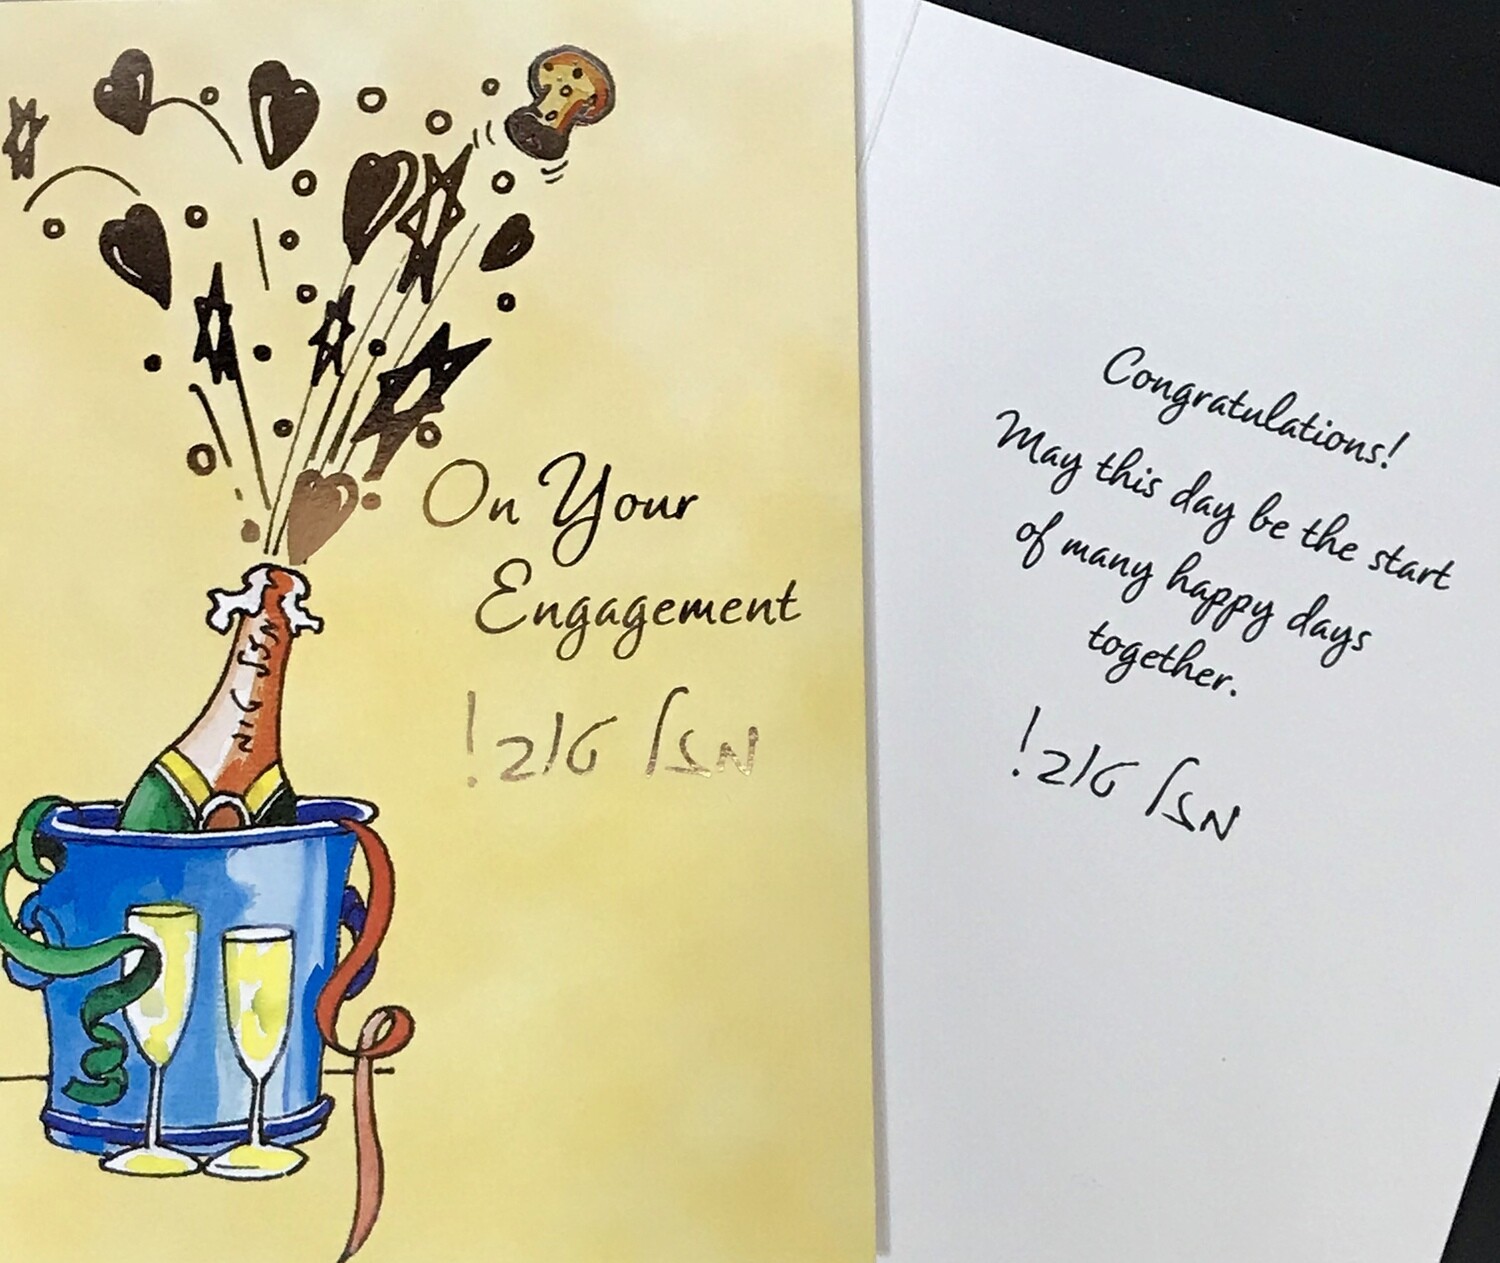 On Your
Engagement
מזל טוב!
מזל טוב
Congratulations!
May this day be the start
of many happy days
together.
מזל טוב!